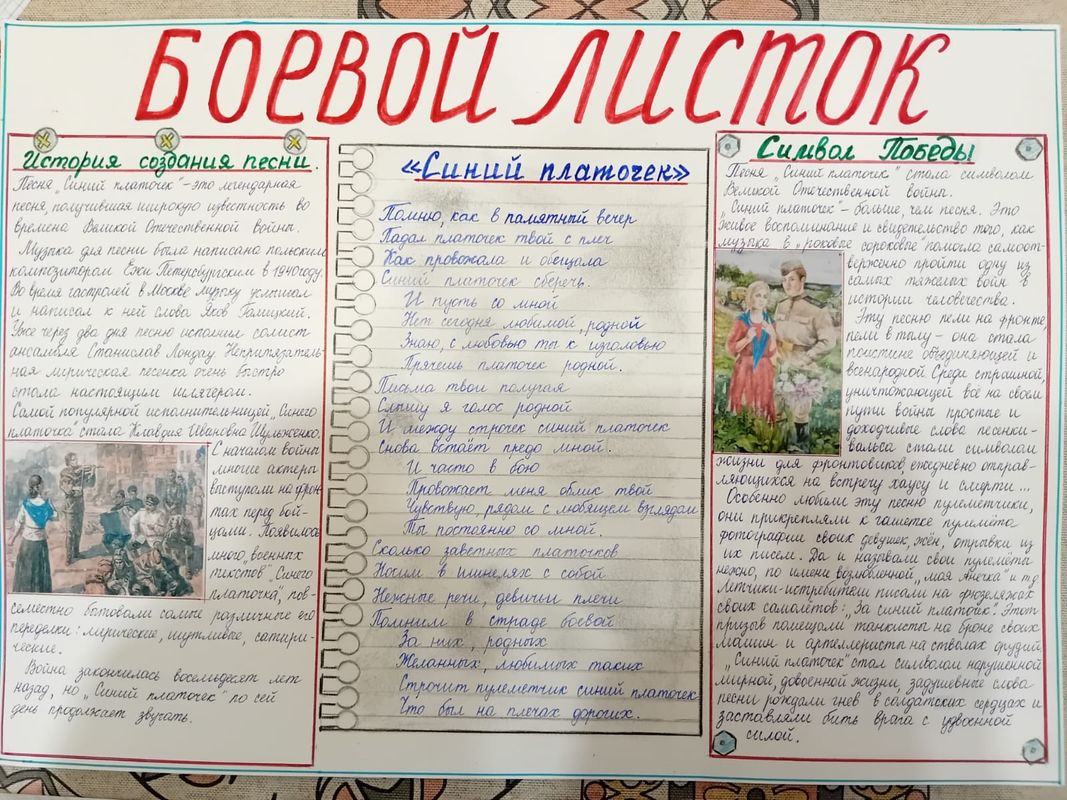 БОЕВОЙ ЛИСТОК
История создания песни.
Песня „Синий платочек" – это легендарная
песня, получившая широкую известность во
времена Великой Отечественной войны.
Музыка для песни была написана польским
композитором Ежи Петерсбургским в 1940 году.
Во время гастролей в Москве музыку услышал
и написал к ней слова Яков Галицкий.
Уже через два дня песню исполнил солист
ансамбля Станислав Ландау. Непритязатель-
ная лирическая песенка очень быстро
стала настоящим шлягером.
Самой популярной исполнительницей „Синего
платочка" стала Клавдия Ивановна Шульженко.
С началом войны
многие актеры
выступали на фрон-
тах перед бой-
цами. Появилось
много „военных
текстов" „Синего
платочка", пов-
семестно бытовали самые различные его
переделки: лирические, шутливые, сатири-
ческие.
Война закончилась восемьдесят лет
назад, но „Синий платочек" по сей
день продолжает звучать.
«Синий платочек»
Помню, как в памятный вечер
Падал платочек твой с плеч
Как провожала и обещала
Синий платочек сберечь.
И пусть со мной
Нет сегодня любимой, родной
Знаю, с любовью ты к изголовью
Прячешь платочек родной.
Письма твои получая
Слышу я голос родной
И между строчек синий платочек
Снова встаёт предо мной.
И часто в бою
Провожает меня облик твой
Чувствую, рядом с любящем взглядом
Ты постоянно со мной.
Сколько заветных платочков
Носим в шинелях с собой
Нежные речи, девичьи плечи
Помним в страде боевой
За них, родных
Желанных, любимых таких
Строчит пулеметчик синий платочек
Что был на плечах дорогих.
Символ Победы
Песня „Синий платочек" стала символом
Великой Отечественной войны.
„Синий платочек" – больше, чем песня. Это
живое воспоминание и свидетельство того, как
музыка в „роковые сороковые помогла самоот-
верженно пройти одну из
самых тяжелых войн в
истории человечества.
Эту песню пели на фронте,
пели в тылу – она стала
поистине объединяющей и
всенародной. Среди страшной,
уничтожающей всё на своем
пути войны простые и
доходчивые слова песенки-
вальса стали символом
жизни для фронтовиков, ежедневно отправ-
ляющихся на встречу хаусу и смерти...
Особенно любили эту песню пулеметчики,
они прикрепляли к гашетке пулемёта
фотографии своих девушек, жён, отрывки из
их писем. Да и называли свои пулемёты
нежно, по имени возлюбленной „моя Анечка" и т.д.
Лётчики-истребители писали на фюзеляжах
своих самолётов: „За синий платочек". Этот
призыв помещали танкисты на броне своих
машин и артиллеристы на стволах орудий.
„Синий платочек" стал символом нарушенной
мирной, довоенной жизни, задушевные слова
песни рождали гнев в солдатских сердцах и
заставляли бить врага с удвоенной
силой.